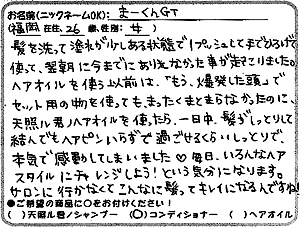 お名前(ニックネームOK): まーくんGT
(福岡 在住, 26 歳, 性別: 女 )
髪を洗って濡れが少しある状態で1プッシュとしてまでひろげて
使って、翌朝に今までにありえなかった事が起こりました。
ヘアオイルを使う以前は、「もう、爆発した頭」で
セット用の物を使ってもまったくまとまらなかったのに、
天照ル君ノヘアオイルを使ったら、一日中、髪がしっとりして
結んでもヘアピンいらずで過ごせるくらいしっとりで、
本気で感動してしまいました♡毎日、いろんなヘア
スタイルにチャレンジしよう!という気分になります。
サロンに行かなくてこんなに髪ってキレイになるんですね!
●ご希望の商品に○をお付けください!
( )天照ル君ノシャンプー (○)コンディショナー ( )ヘアオイル